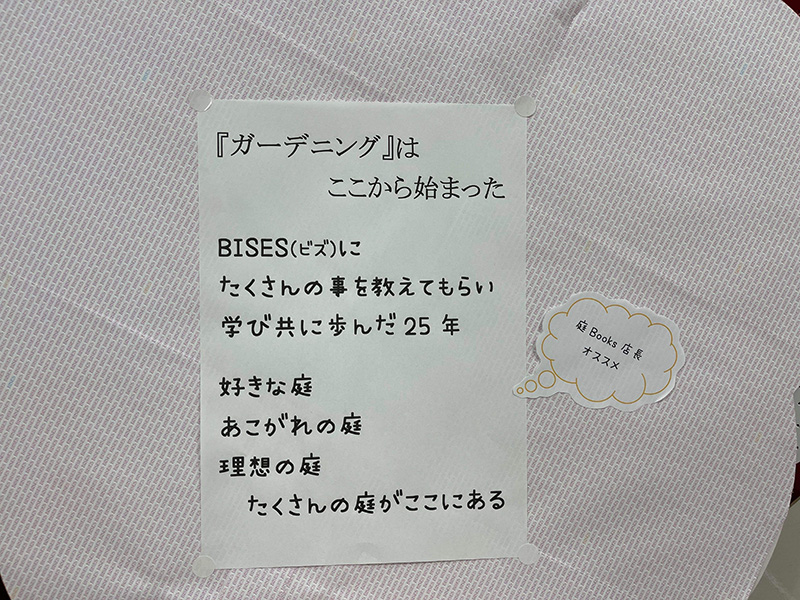 『ガーデニング』は
ここから始まった
BISES(ビズ)に
たくさんの事を教えてもらい
学び共に歩んだ25年
好きな庭
あこがれの庭
理想の庭
たくさんの庭がここにある
庭Books店長
オススメ